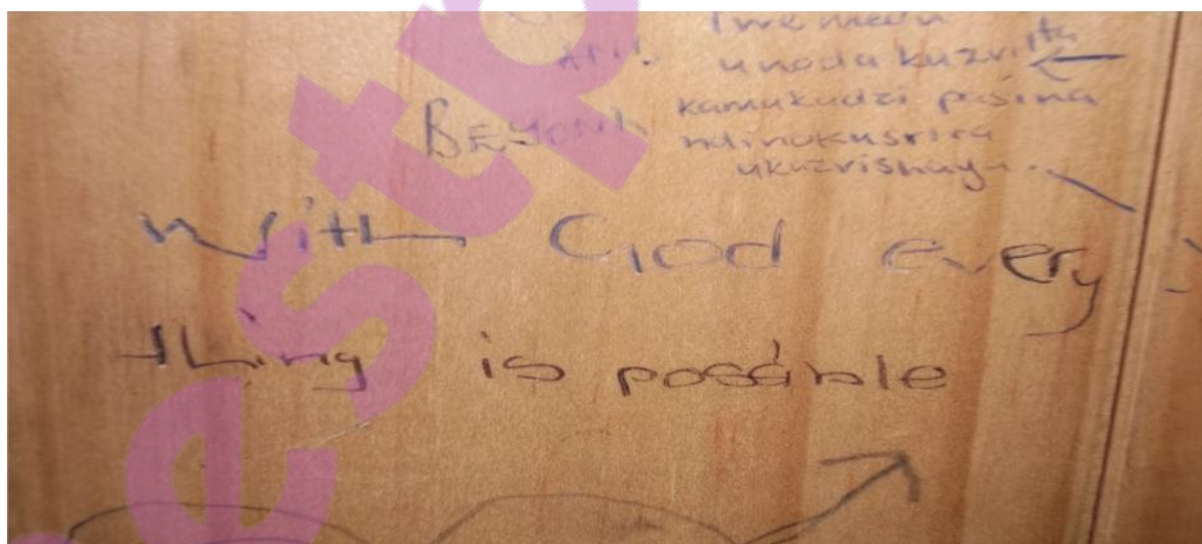 Iwe medu
unoda kuzvifta
BEYOND kamukudzi pasina
ndinokusvira
ukazvishaya.
With God every
thing is possible